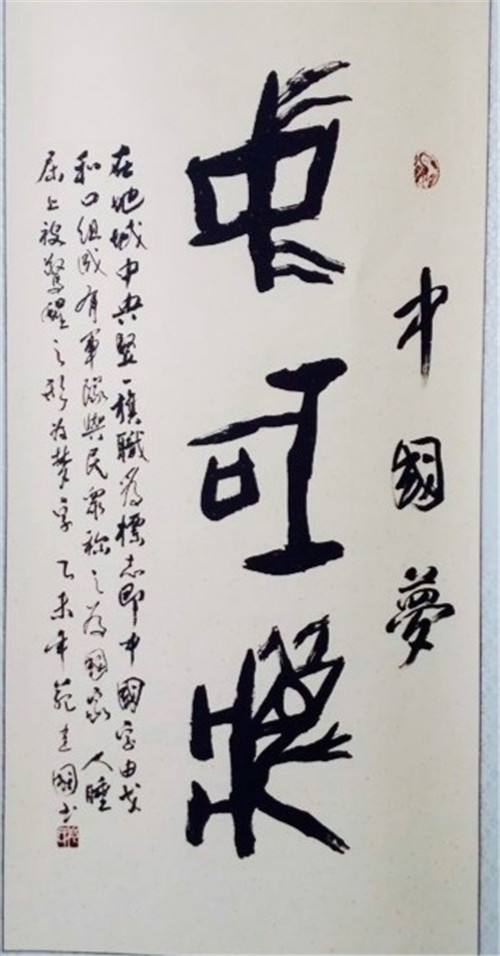 中國夢
中國夢
在地域中央竪一旗職為標志即中國字由戈
和口組成有軍隊與民眾稱之為國家人睡
床上被驚醒之形為夢字乙未年范建國書